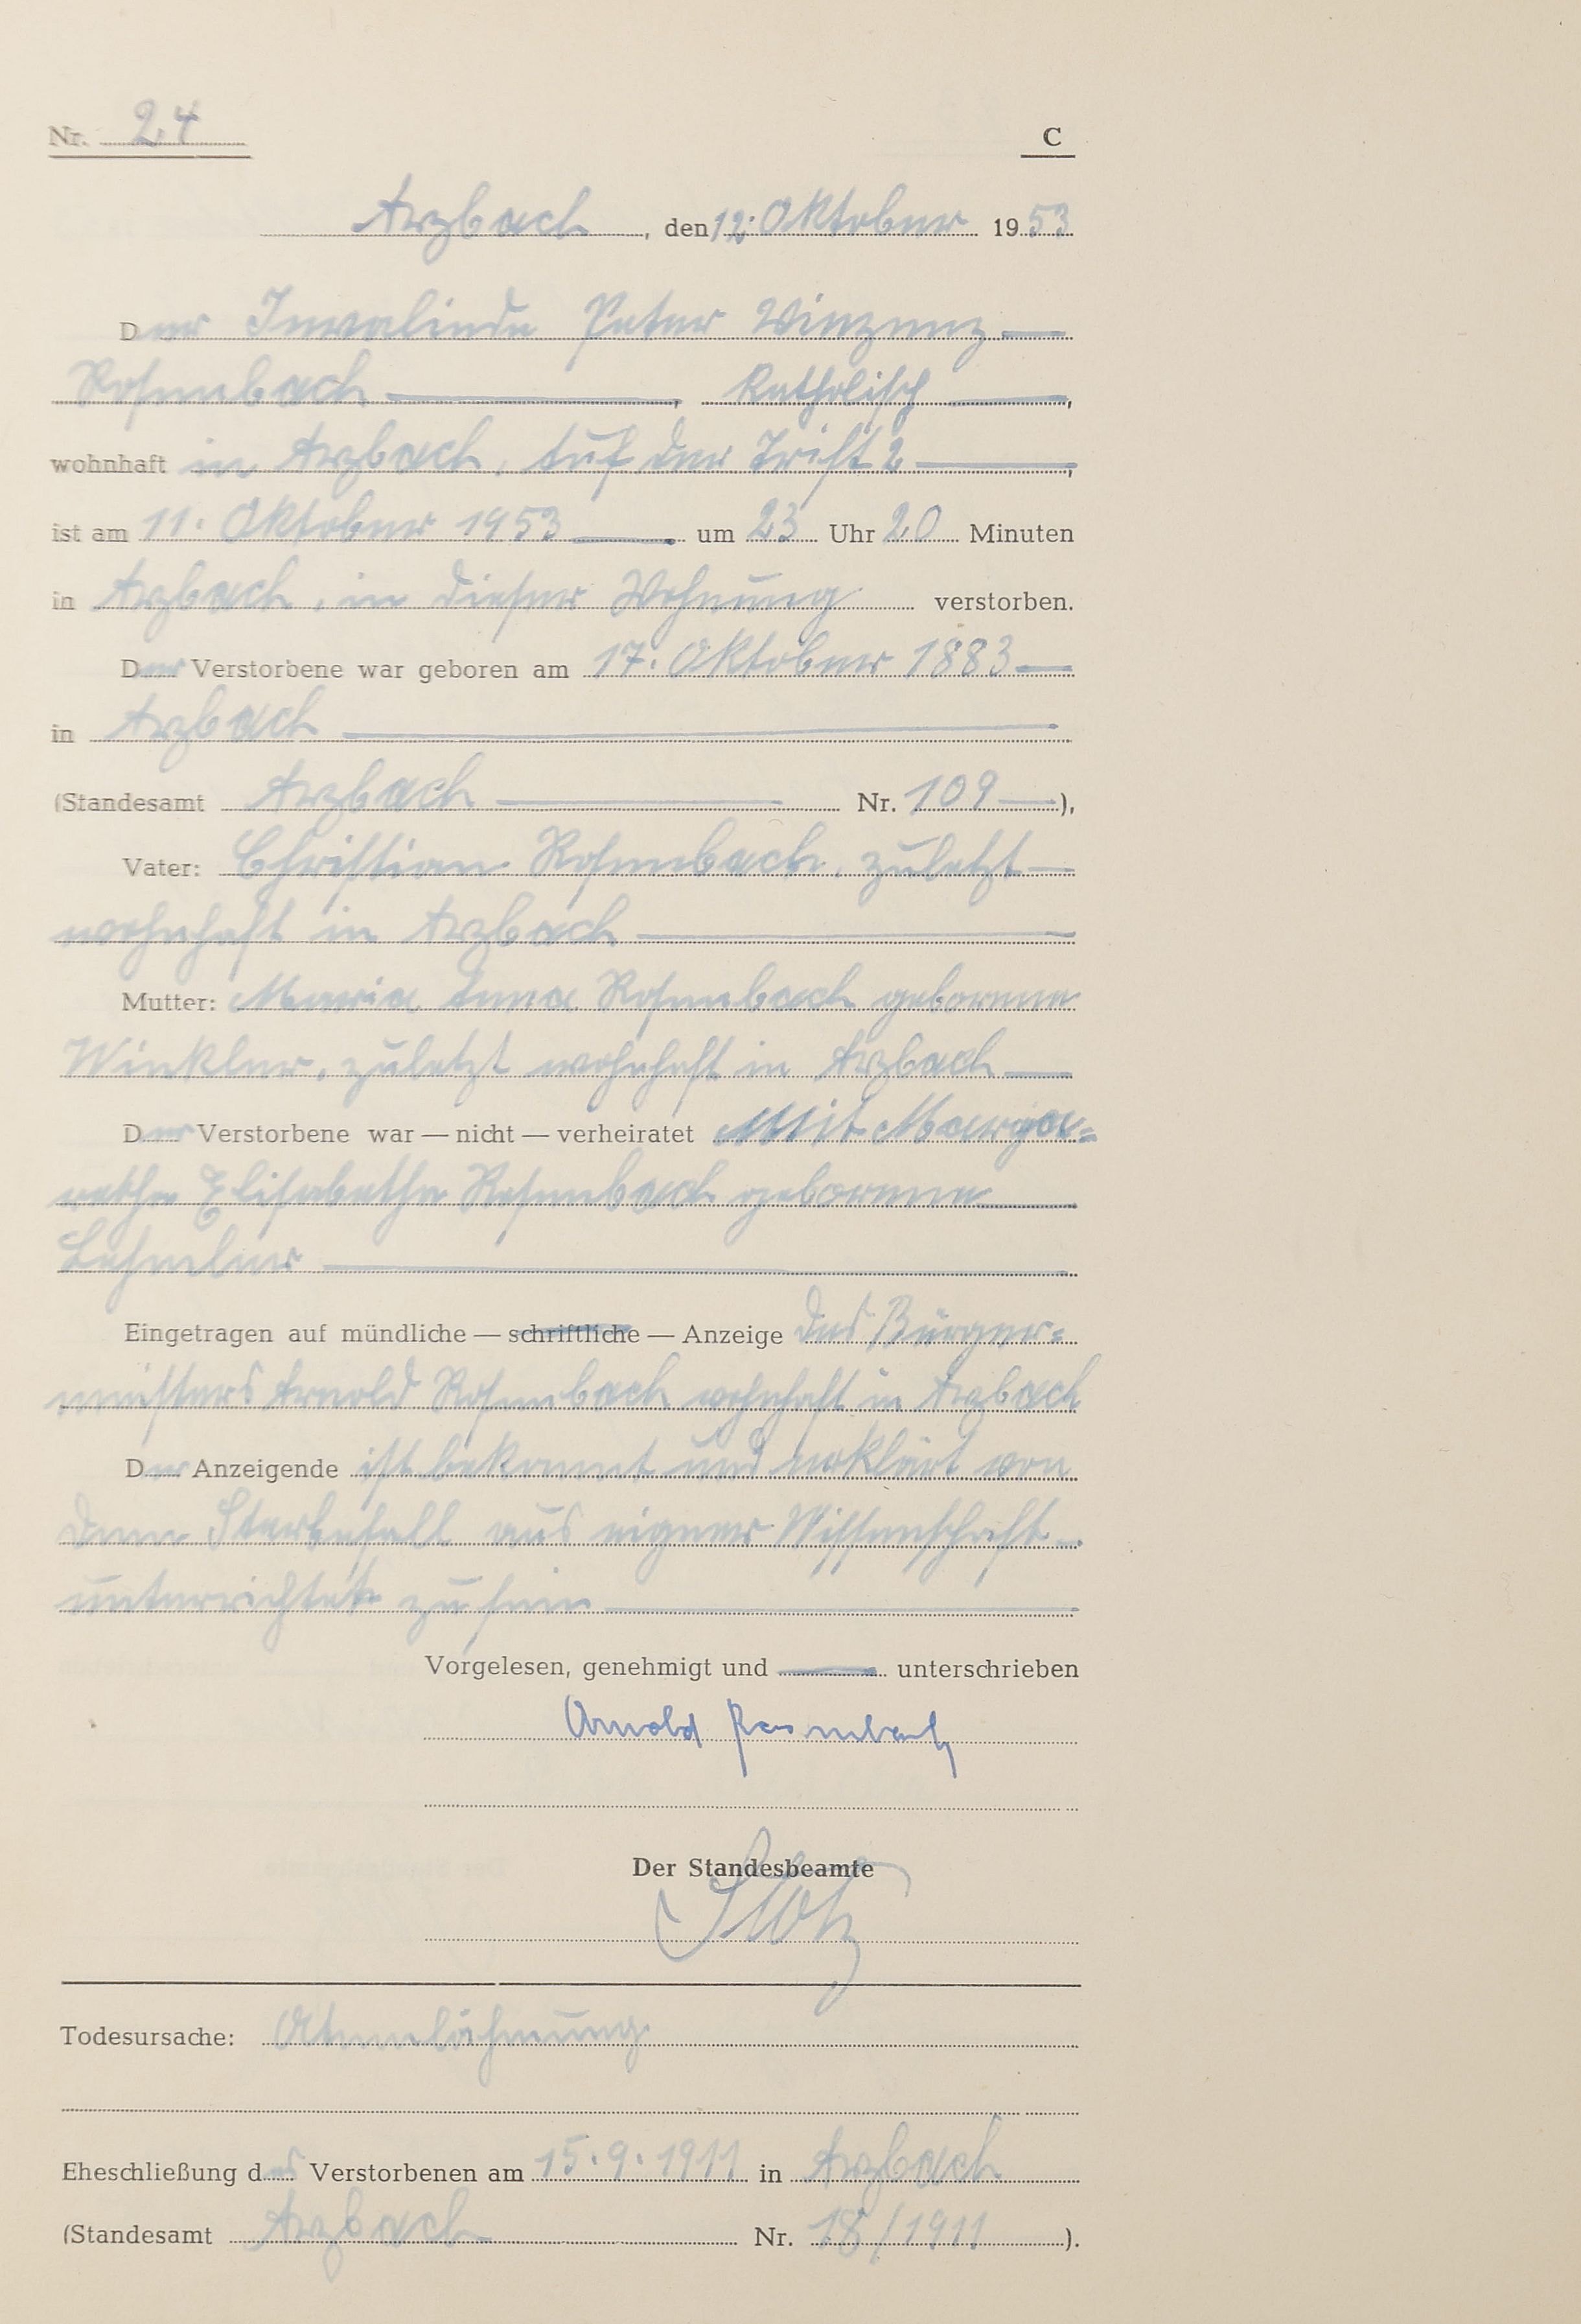 Nr. 24
C
Arzbach, den 12. Oktober 1953
Der Invalinde Peter Vinzenz
Rosenbach, Katholisch,
wohnhaft in Arzbach, Auf der Trift 2,
ist am 11. Oktober 1953 um 23 Uhr 20 Minuten
in Arzbach, in dieser Wohnung verstorben.
Der Verstorbene war geboren am 17. Oktober 1883
in Arzbach
(Standesamt Arzbach Nr. 109),
Vater: Christian Rosenbach, zuletzt
wohnhaft in Arzbach
Mutter: Maria Anna Rosenbach geborene
Winkler, zuletzt wohnhaft in Arzbach
Der Verstorbene war — nicht — verheiratet Mit Marga=
rethe Elisabetha Rosenbach geborene
Eingetragen auf mündliche — schriftliche — Anzeige des Bürger=
meisters Arnold Rosenbach wohnhaft in Arzbach
Der Anzeigende ist bekannt und erklärt von
dem Sterbefall aus eigner Wissenschaft
unterrichtet zu sein
Vorgelesen, genehmigt und unterschrieben
Arnold Rosenbach
Der Standesbeamte
Todesursache: Atemlähmung
Eheschließung des Verstorbenen am 15.9.1911 in Arzbach
(Standesamt Arzbach Nr. 18/1911).